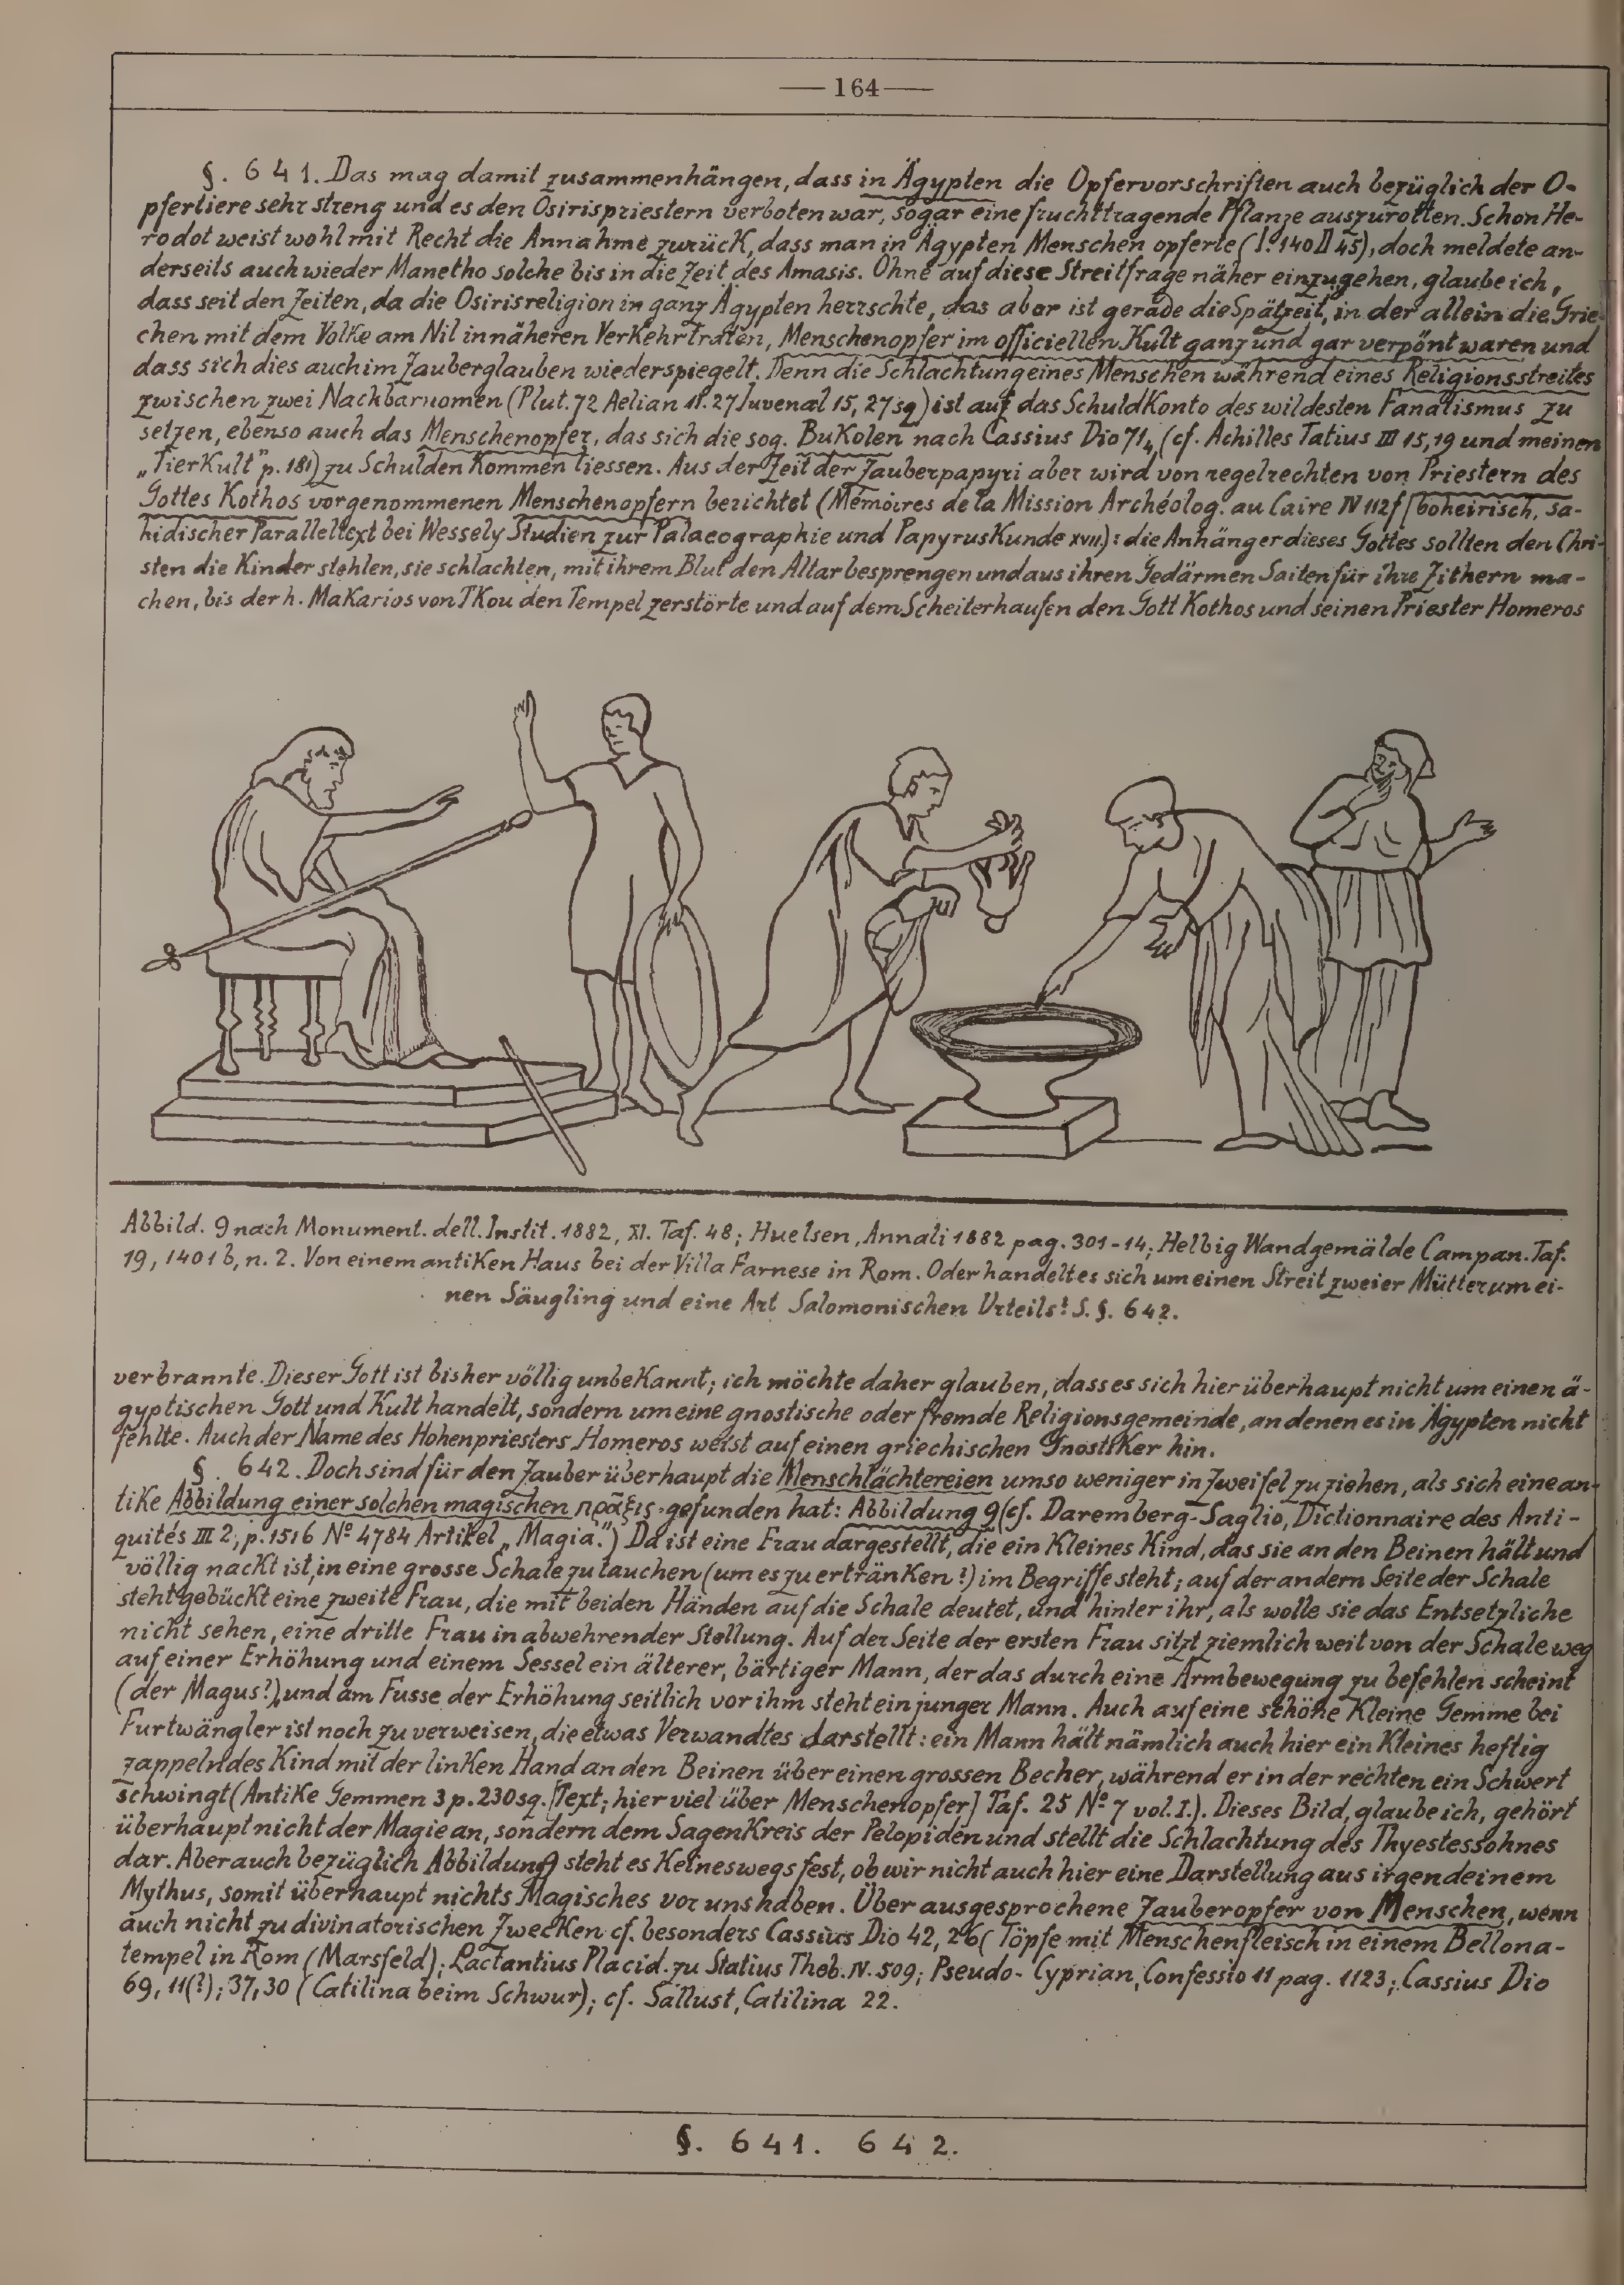 — 164 —
§. 641. Das mag damit zusammenhängen, dass in Ägypten die Opfervorschriften auch bezüglich der O-
pfertiere sehr streng und es den Osirispriestern verboten war, sogar eine fruchttragende Pflanze auszurotten. Schon He-
rodot weist wohl mit Recht die Annahme zurück, dass man in Ägypten Menschen opferte (§. 140 II 45), doch meldete an-
derseits auch wieder Manetho solche bis in die Zeit des Amasis. Ohne auf diese Streitfrage näher einzugehen, glaube ich,
dass seit den Zeiten, da die Osirisreligion in ganz Ägypten herrschte, das aber ist gerade die Spätzeit, in der allein die Grie-
chen mit dem Volke am Nil in näheren Verkehr traten, Menschenopfer im officiellen Kult ganz und gar verpönt waren und
dass sich dies auch im Zauberglauben wiederspiegelt. Denn die Schlachtung eines Menschen während eines Religionsstreites
zwischen zwei Nachbarnomen (Plut. 72 Aelian 11. 27 Juvenal 15, 27 sq) ist auf das Schuldkonto des wildesten Fanatismus zu
setzen, ebenso auch das Menschenopfer, das sich die sog. Bukolen nach Cassius Dio 71, 4, (cf. Achilles Tatius III 15, 19 und meinen
„Tierkult" p. 181) zu Schulden kommen liessen. Aus der Zeit der Zauberpapyri aber wird von regelrechten von Priestern des
Gottes Kothos vorgenommenen Menschenopfern berichtet (Mémoires de la Mission Archéolog. au Caire IV 112 f [boheirisch, sa-
hidischer Paralleltext bei Wessely Studien zur Palaeographie und Papyruskunde XVIII.): die Anhänger dieses Gottes sollten den Chri-
sten die Kinder stehlen, sie schlachten, mit ihrem Blut den Altar besprengen und aus ihren Gedärmen Saiten für ihre Zithern ma-
chen, bis der h. Makarios von Tkou den Tempel zerstörte und auf dem Scheiterhaufen den Gott Kothos und seinen Priester Homeros
Abbild. 9 nach Monument. dell. Instit. 1882, XI. Taf. 48; Huelsen, Annali 1882 pag. 301-14; Helbig Wandgemälde Campan. Taf.
19, 1401 b, n. 2. Von einem antiken Haus bei der Villa Farnese in Rom. Oder handelt es sich um einen Streit zweier Mütter um ei-
nen Säugling und eine Art Salomonischen Urteils? S. §. 642.
verbrannte. Dieser Gott ist bisher völlig unbekannt; ich möchte daher glauben, dass es sich hier überhaupt nicht um einen ä-
gyptischen Gott und Kult handelt, sondern um eine gnostische oder fremde Religionsgemeinde, an denen es in Ägypten nicht
fehlte. Auch der Name des Hohenpriesters Homeros weist auf einen griechischen Gnostiker hin.
§. 642. Doch sind für den Zauber überhaupt die Menschlächtereien umso weniger in Zweifel zu ziehen, als sich eine an-
tike Abbildung einer solchen magischen πρᾶξις gefunden hat: Abbildung 9 (cf. Daremberg-Saglio, Dictionnaire des Anti-
quités III 2, p. 1516 Nº 4784 Artikel „Magia.") Da ist eine Frau dargestellt, die ein kleines Kind, das sie an den Beinen hält und
völlig nackt ist, in eine grosse Schale zu tauchen (um es zu ertränken?) im Begriffe steht; auf der andern Seite der Schale
steht gebückt eine zweite Frau, die mit beiden Händen auf die Schale deutet, und hinter ihr, als wolle sie das Entsetzliche
nicht sehen, eine dritte Frau in abwehrender Stellung. Auf der Seite der ersten Frau sitzt ziemlich weit von der Schale weg
auf einer Erhöhung und einem Sessel ein älterer, bärtiger Mann, der das durch eine Armbewegung zu befehlen scheint
(der Magus?), und am Fusse der Erhöhung seitlich vor ihm steht ein junger Mann. Auch auf eine schöne kleine Gemme bei
Furtwängler ist noch zu verweisen, die etwas Verwandtes darstellt: ein Mann hält nämlich auch hier ein kleines heftig
zappelndes Kind mit der linken Hand an den Beinen über einen grossen Becher, während er in der rechten ein Schwert
schwingt (Antike Gemmen 3 p. 230 sq. [Text; hier viel über Menschenopfer] Taf. 25 Nº 7 vol. I.). Dieses Bild, glaube ich, gehört
überhaupt nicht der Magie an, sondern dem Sagenkreis der Pelopiden und stellt die Schlachtung des Thyestessohnes
dar. Aber auch bezüglich Abbildung 9 steht es keineswegs fest, ob wir nicht auch hier eine Darstellung aus irgendeinem
Mythus, somit überhaupt nichts Magisches vor uns haben. Über ausgesprochene Zauberopfer von Menschen, wenn
auch nicht zu divinatorischen Zwecken cf. besonders Cassius Dio 42, 26 (Töpfe mit Menschenfleisch in einem Bellona-
tempel in Rom (Marsfeld); Lactantius Placid. zu Statius Theb. IV. 509; Pseudo-Cyprian, Confessio 11 pag. 1123; Cassius Dio
69, 11(?); 37, 30 (Catilina beim Schwur); cf. Sallust, Catilina 22.
§. 641. 642.